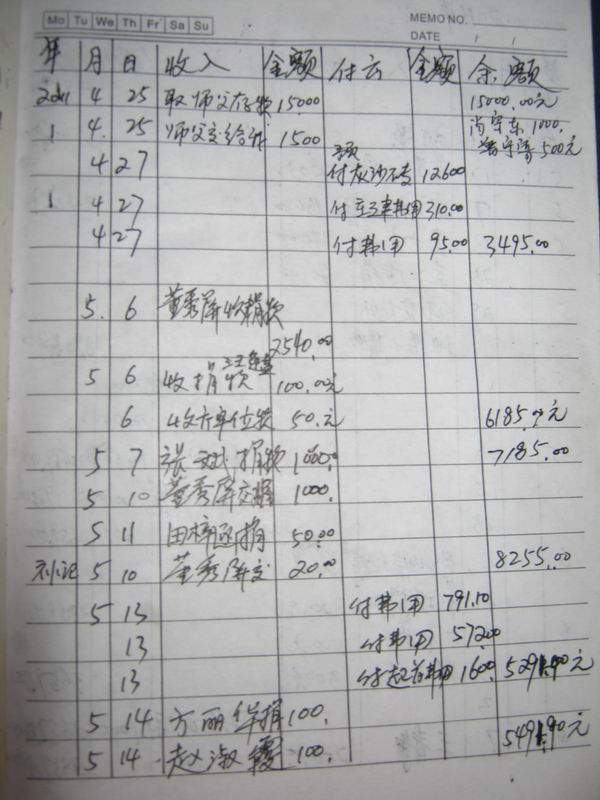 Mo Tu We Th Fr Sa Su MEMO NO.
DATE / /
年 月 日 收入 金额 付云 金额 余额
2011 4 25 取师父存款 15000 15000.00元
1 4. 25 师父交给我 1500 1000.
500元
4 27 付灰沙石 12600
1 4 27 付 费用 310.00
4 27 付费用 95.00 3495.00
5. 6 董秀屏收捐款
2540.00
5 6 收捐款 100.00元
6 收 单位款 50.元 6185.00元
5 7 张斌捐款 1000.00 7185.00
5 10 董秀屏交 1000.
5 11 田梓函捐 50.00
补记 5 10 董秀屏交 20.00 8255.00
5 13 付费用 791.10
13 付费用 572.00
13 付 费用 1600. 5291.90元
5 14 方丽华捐 100.
5 14. 赵淑霞 100. 5491.90元